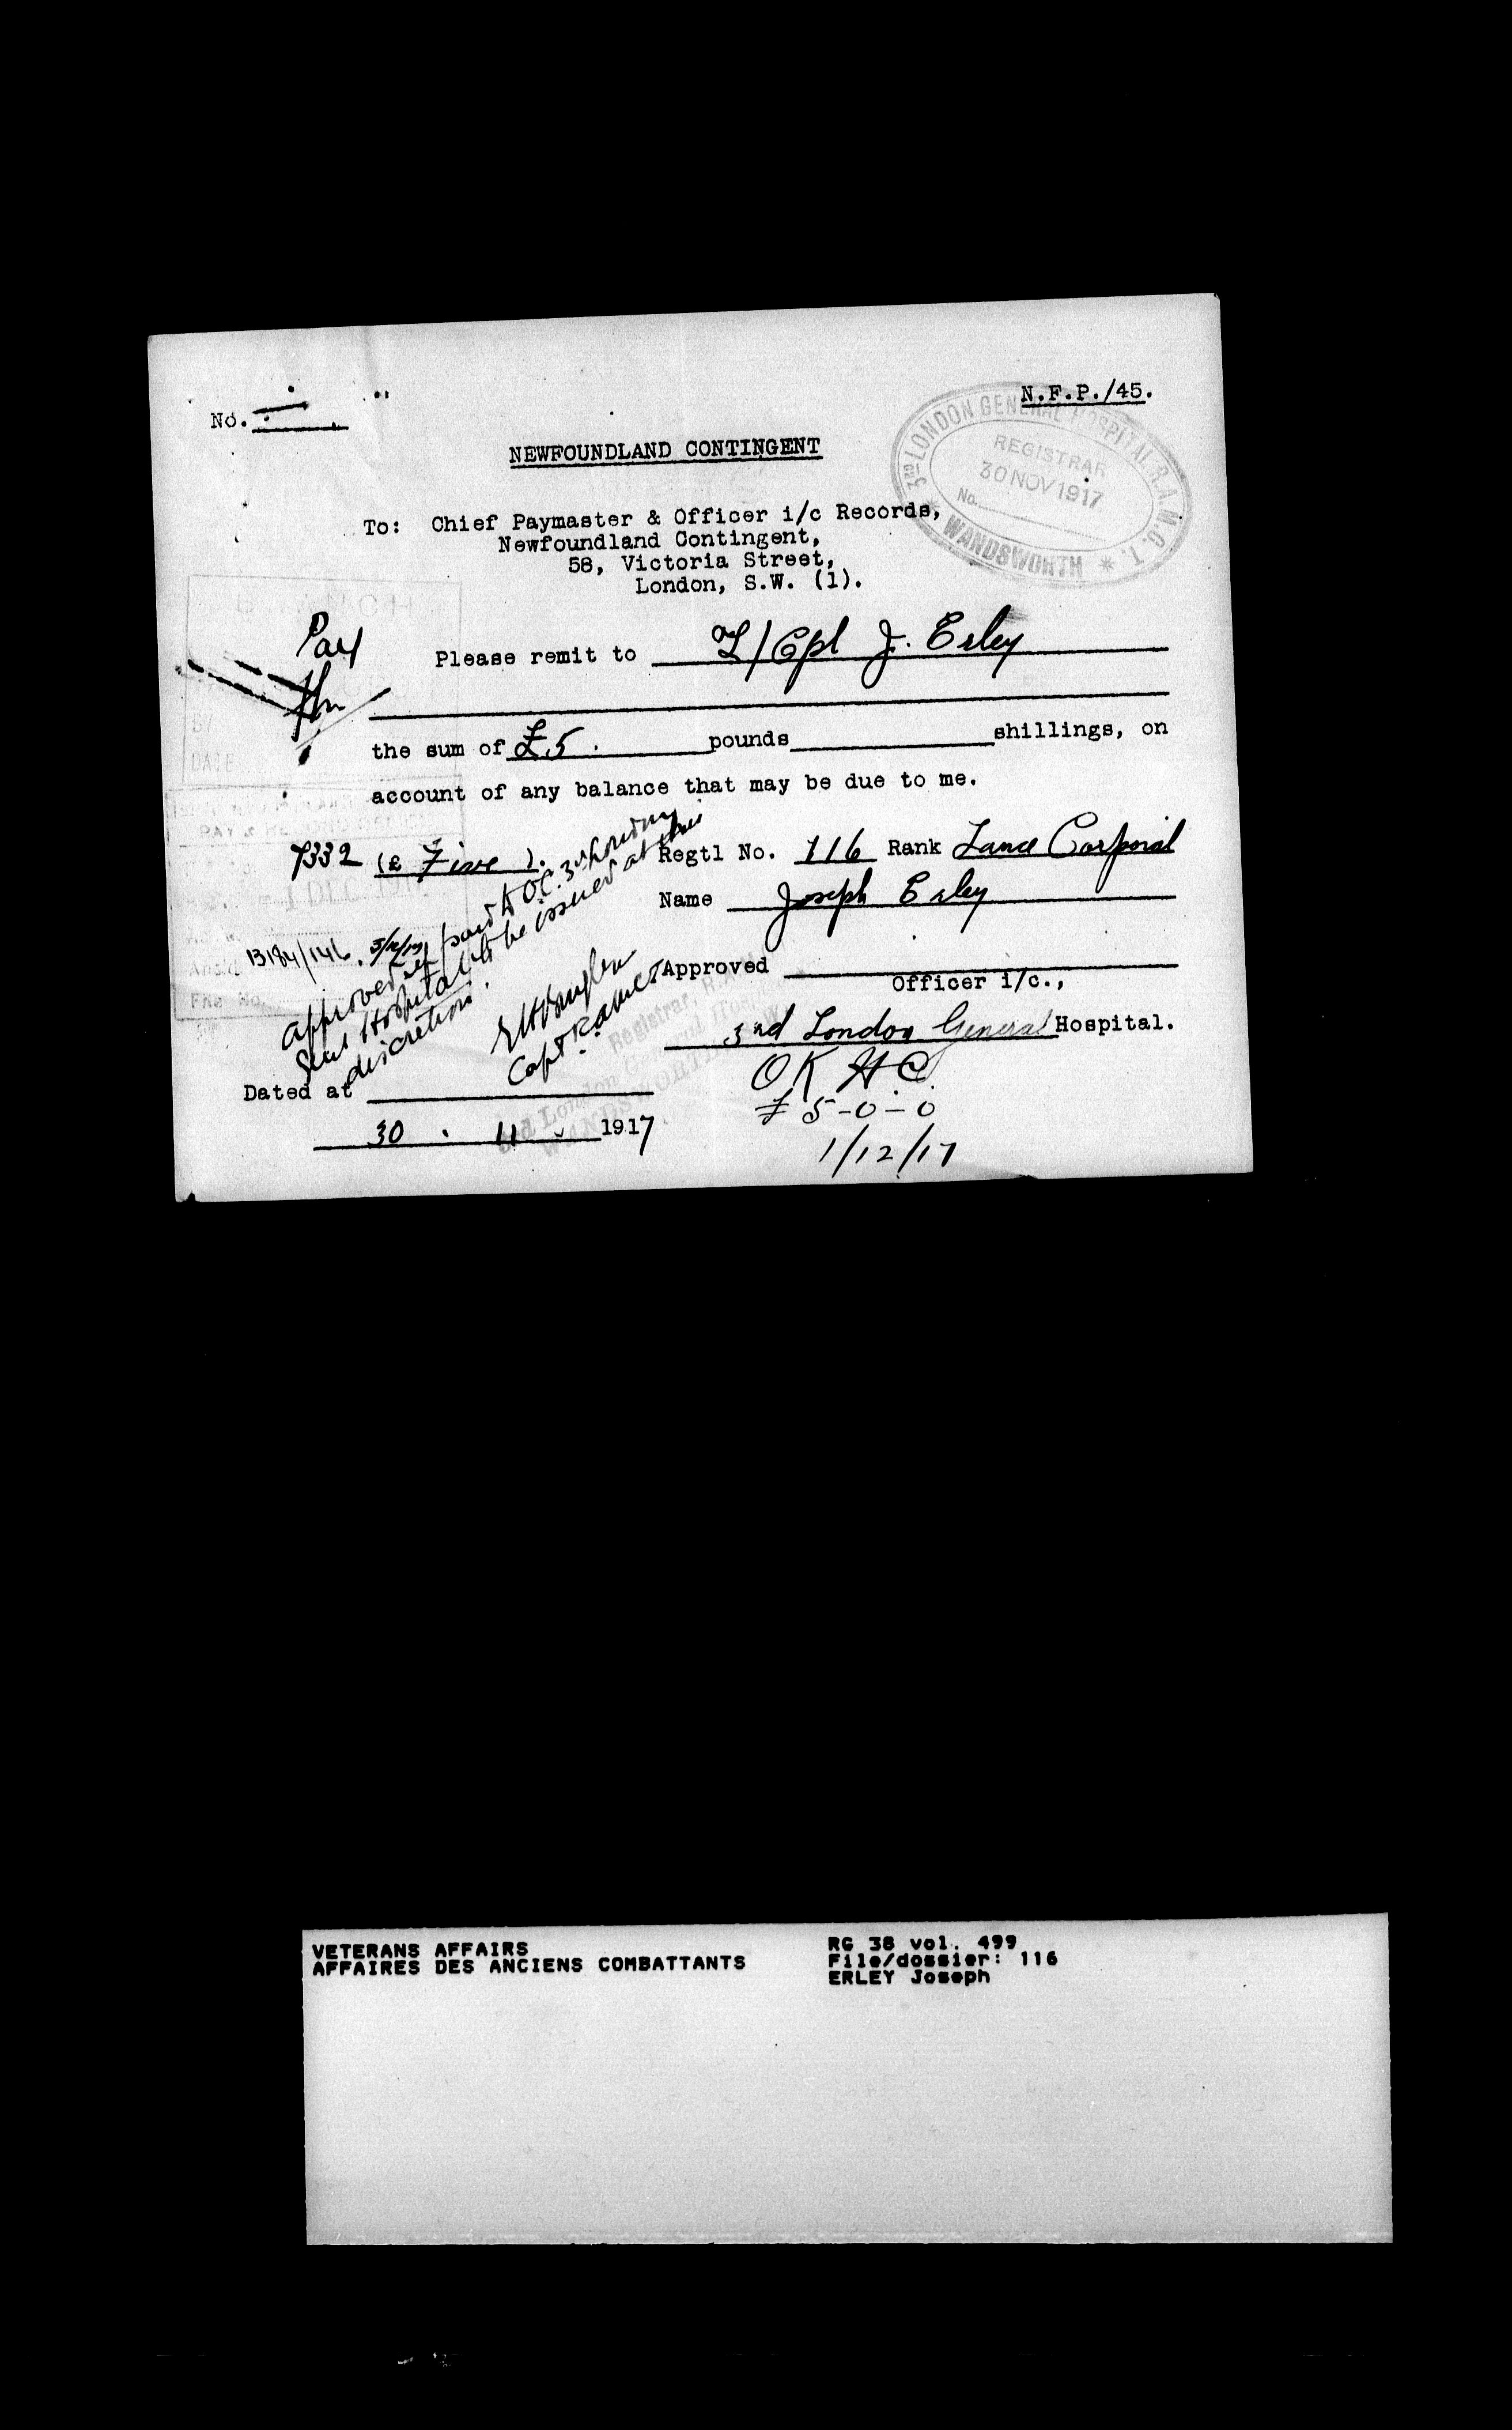 No.
N.F.P./45.
NEWFOUNDLAND CONTINGENT
3RD LONDON GENERAL HOSPITAL R.A.M.C.T.
REGISTRAR
30 NOV 1917
No.
* WANDSWORTH *
To: Chief Paymaster & Officer i/c Records,
Newfoundland Contingent,
58, Victoria Street,
London, S.W. (1).
Pay
Please remit to L/Cpl J. Erley
the sum of £5. pounds shillings, on
account of any balance that may be due to me.
BRANCH
BY
DATE
PAY & RECORD OFFICE
1 DEC 1917
File No.
7332 (£ Five ).
Regtl No. 116 Rank Lance Corporal
Name Joseph Erley
13184/146. 3/12/17
Approved if paid to O.C. 3rd London
Genl Hospital to be issued at their
discretion.
Capt RAMCT
Approved
Officer i/c.,
Registrar, R.A.M.
3rd London General Hospital
WANDSWORTH
3rd London General Hospital.
OK HC
£5-0-0
1/12/17
Dated at
30 . 11 1917
VETERANS AFFAIRS
AFFAIRES DES ANCIENS COMBATTANTS
RG 38 vol. 499
File/dossier: 116
ERLEY Joseph